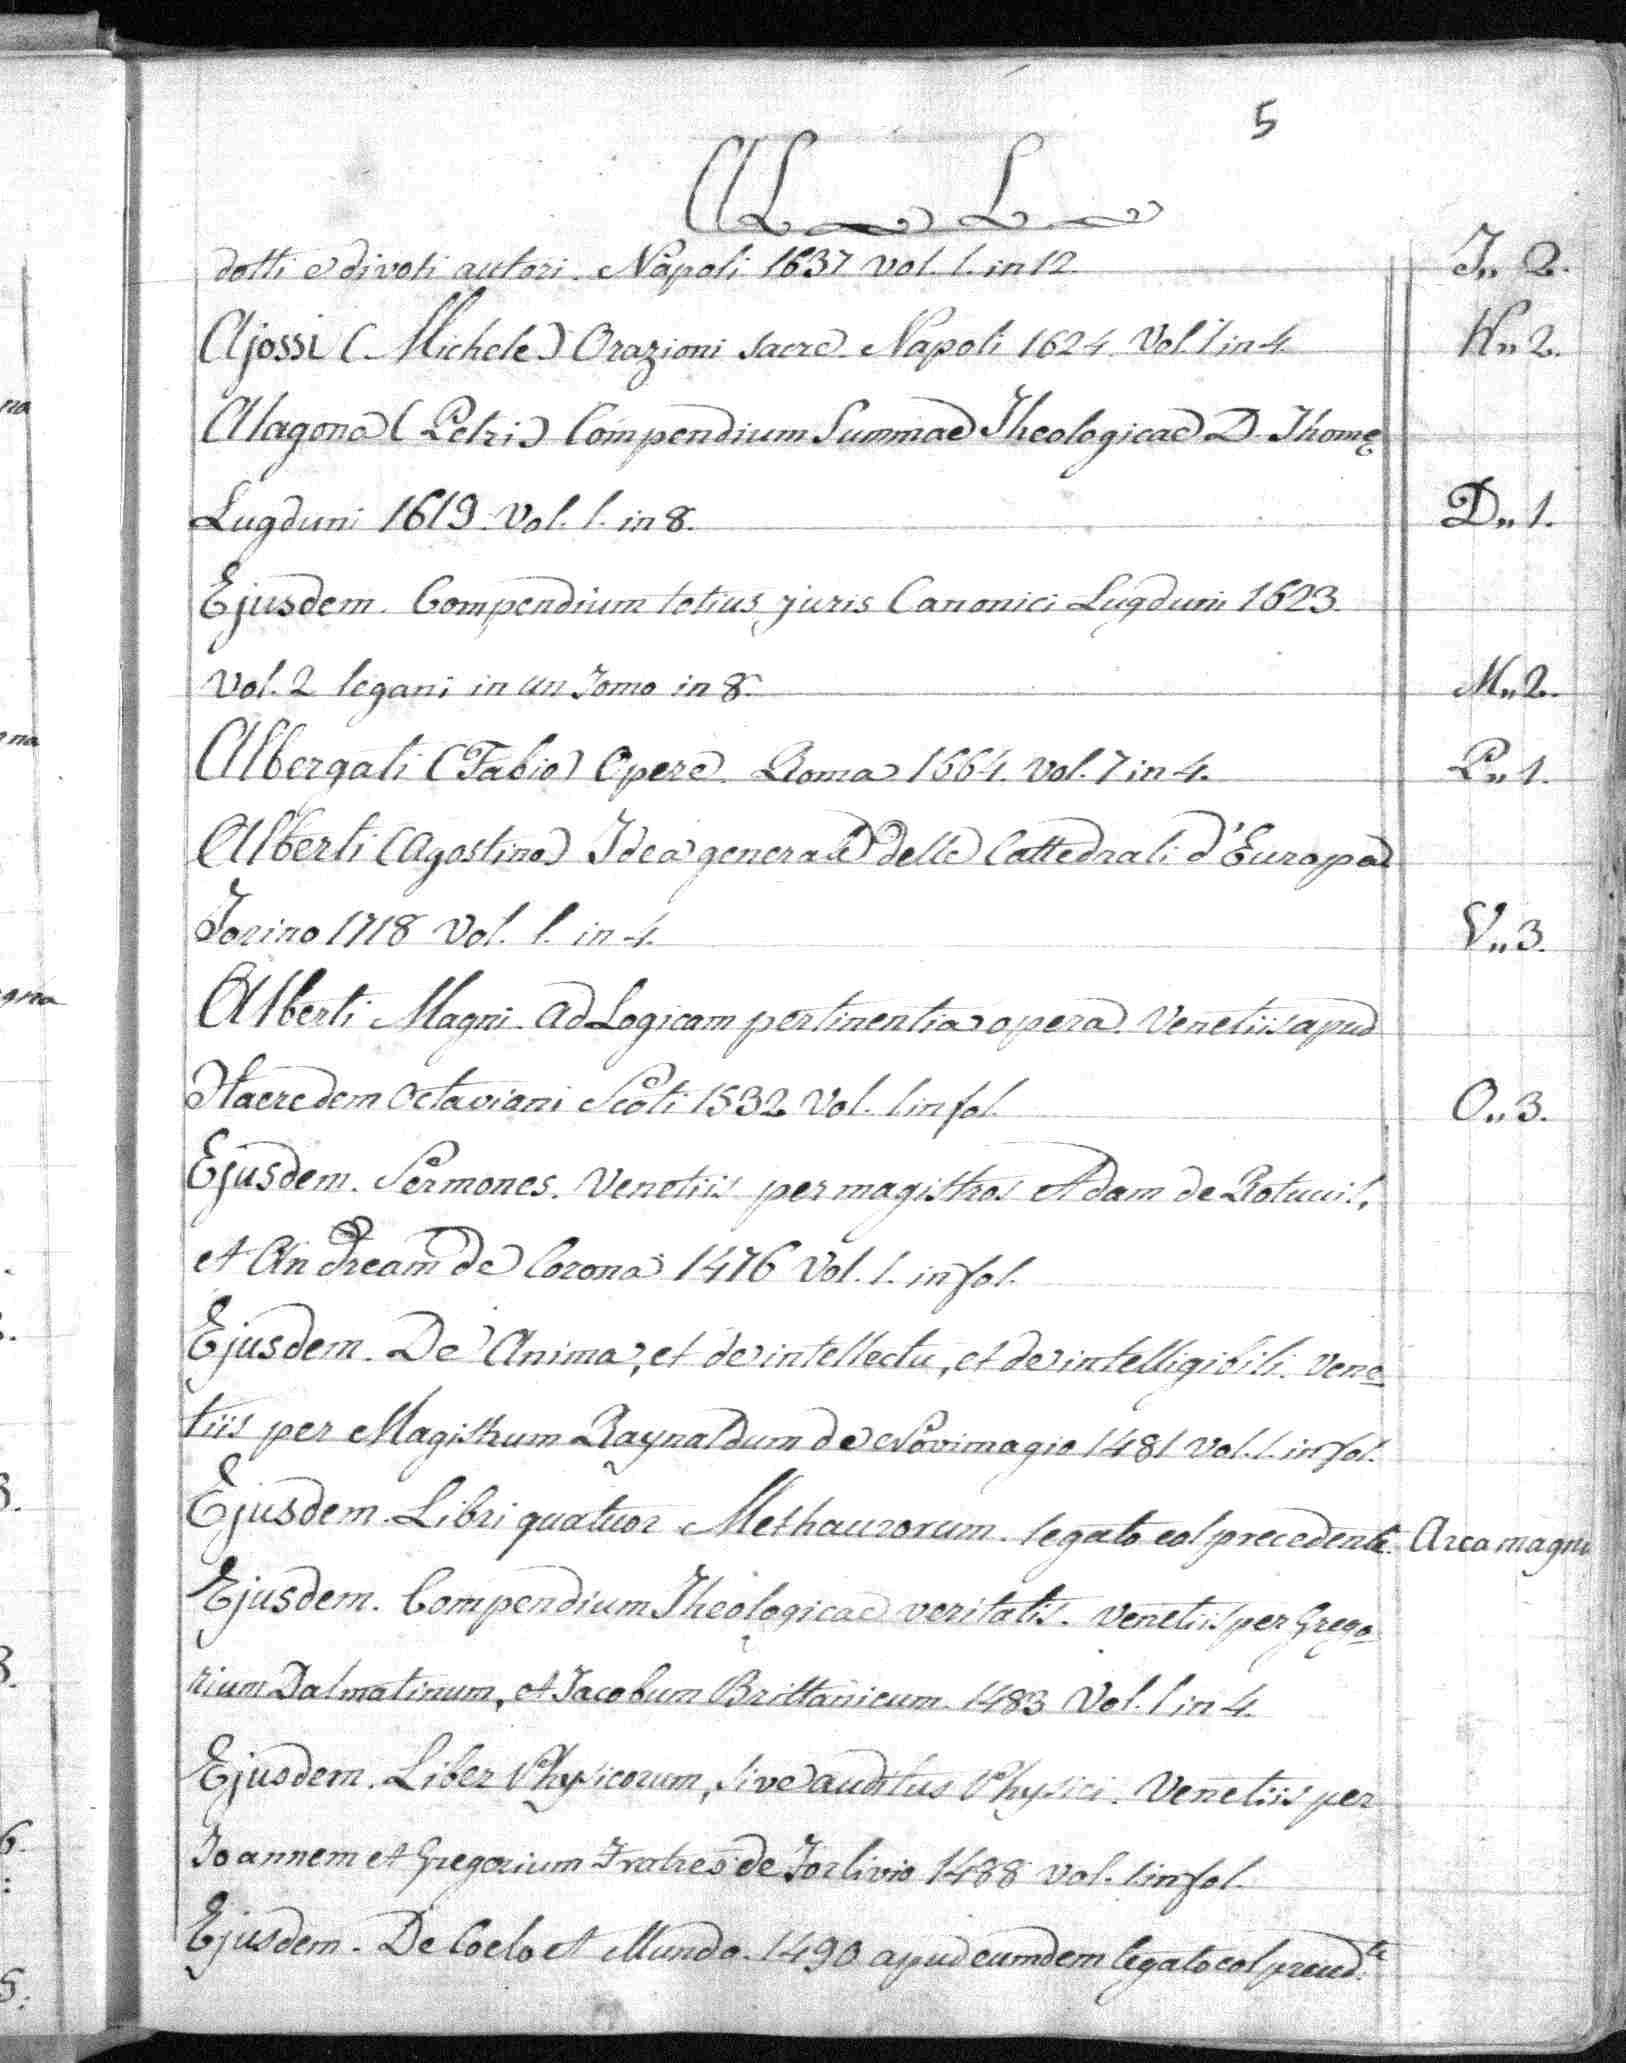 na
na
gna
5
AL L
dotti e divoti autori. Napoli 1637 vol. 1. in 12. I,, 2.
Ajossi (Michele) Orazioni sacre. Napoli 1624. Vol. 1 in 4. K,, 2.
Alagona (Petri) Compendium Summae Theologicae D. Thomę
Lugduni 1619. Vol. 1. in 8. D,, 1.
Ejusdem. Compendium totius juris Canonici Lugduni 1623.
Vol. 2 legani in un Tomo in 8. M,, 2.
Albergati (Fabio) Opere. Roma 1664. vol. 7 in 4. P,, 1.
Alberti (Agostino) Idea generale delle Cattedrali d'Europa
Torino 1718 Vol. 1. in 4. V,, 3.
Alberti Magni. ad Logicam pertinentia opera. Venetiis apud
Haeredem Octaviani Scoti 1532 Vol. 1 in fol. O,, 3.
Ejusdem. Sermones. Venetiis per magistros Adam de Rotuuil,
et Andream de Corona 1476 Vol. 1. in fol.
Ejusdem. De Anima, et de intellectu, et de intelligibili. Vene=
tiis per Magistrum Raynaldum de Novimagio 1481 vol. 1. in fol.
Ejusdem. Libri quatuor Methaurorum. legato col precedente. Arca magna
Ejusdem. Compendium Theologicae veritatis. Venetiis per Grego=
rium Dalmatinum, et Jacobum Brittanicum. 1483 Vol. 1 in 4.
Ejusdem. Liber Physicorum, sive auditus Physici. Venetiis per
Joannem et Gregorium Fratres de Forlivio 1488 vol. 1 in fol.
Ejusdem. De Coelo et Mundo. 1490 apud eumdem legato col preced.te